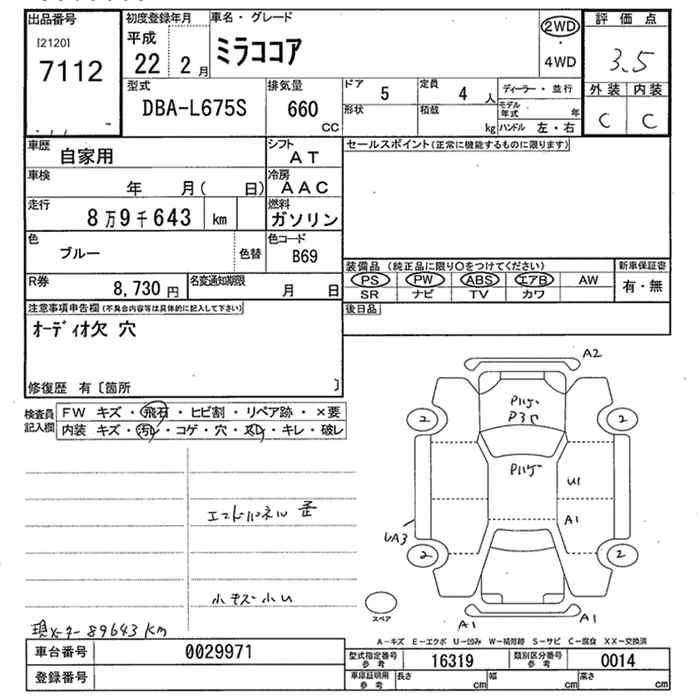 出品番号
[2120]
7112
初度登録年月
平成
22 2月
車名・グレード
ミラココア
2WD
・
4WD
評価点
3.5
外装 内装
C C
型式
DBA-L675S
排気量
660
CC
ドア 5
形状
定員 4 人
積載 kg
ディーラー・並行
モデル年式 年
ハンドル 左・右
車歴 自家用
シフト AT
車検 年 月( 日)
冷房 AAC
走行 8万9千643 km
燃料 ガソリン
色 ブルー 色替
色コード B69
R券 8,730 円
名変通知期限 月 日
セールスポイント(正常に機能するものに限ります)
装備品(純正品に限り〇をつけてください)
PS PW ABS エアB AW
SR ナビ TV カワ
新車保証書
有・無
後日品
注意事項申告欄(不具合内容等は具体的に記入して下さい)
オーディオ欠 穴
修復歴 有〔箇所 〕
検査員記入欄
FW キズ・飛石・ヒビ割・リペア跡・×要
内装 キズ・汚レ・コゲ・穴・スレ・キレ・破レ
小キズ小U
現メーター89643km
A2
2
2
2
2
U1
A1
UA3
A1
A1
スペア
A-キズ E-エクボ U-凹み W-補修跡 S-サビ C-腐食 XX-交換済
車台番号 0029971
登録番号
型式指定番号 参考 16319
類別区分番号 参考 0014
車庫証明用 参考 長さ cm 幅 cm 高さ cm